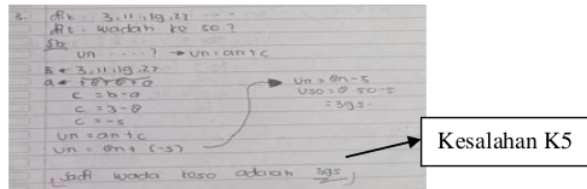 3. dik : 3, 11, 19, 27
dit : wadah ke 50 ?
Sb
Un ....? → Un = an + c
B = 3, 11, 19, 27
a = +8 +8 +8
c = b - a
c = 3 - 8
c = -5
Un = an + c
Un = 8n + (-5)
Un = 8n - 5
U50 = 8 . 50 - 5
= 395
Jadi wada ke50 adalah 395
Kesalahan K5